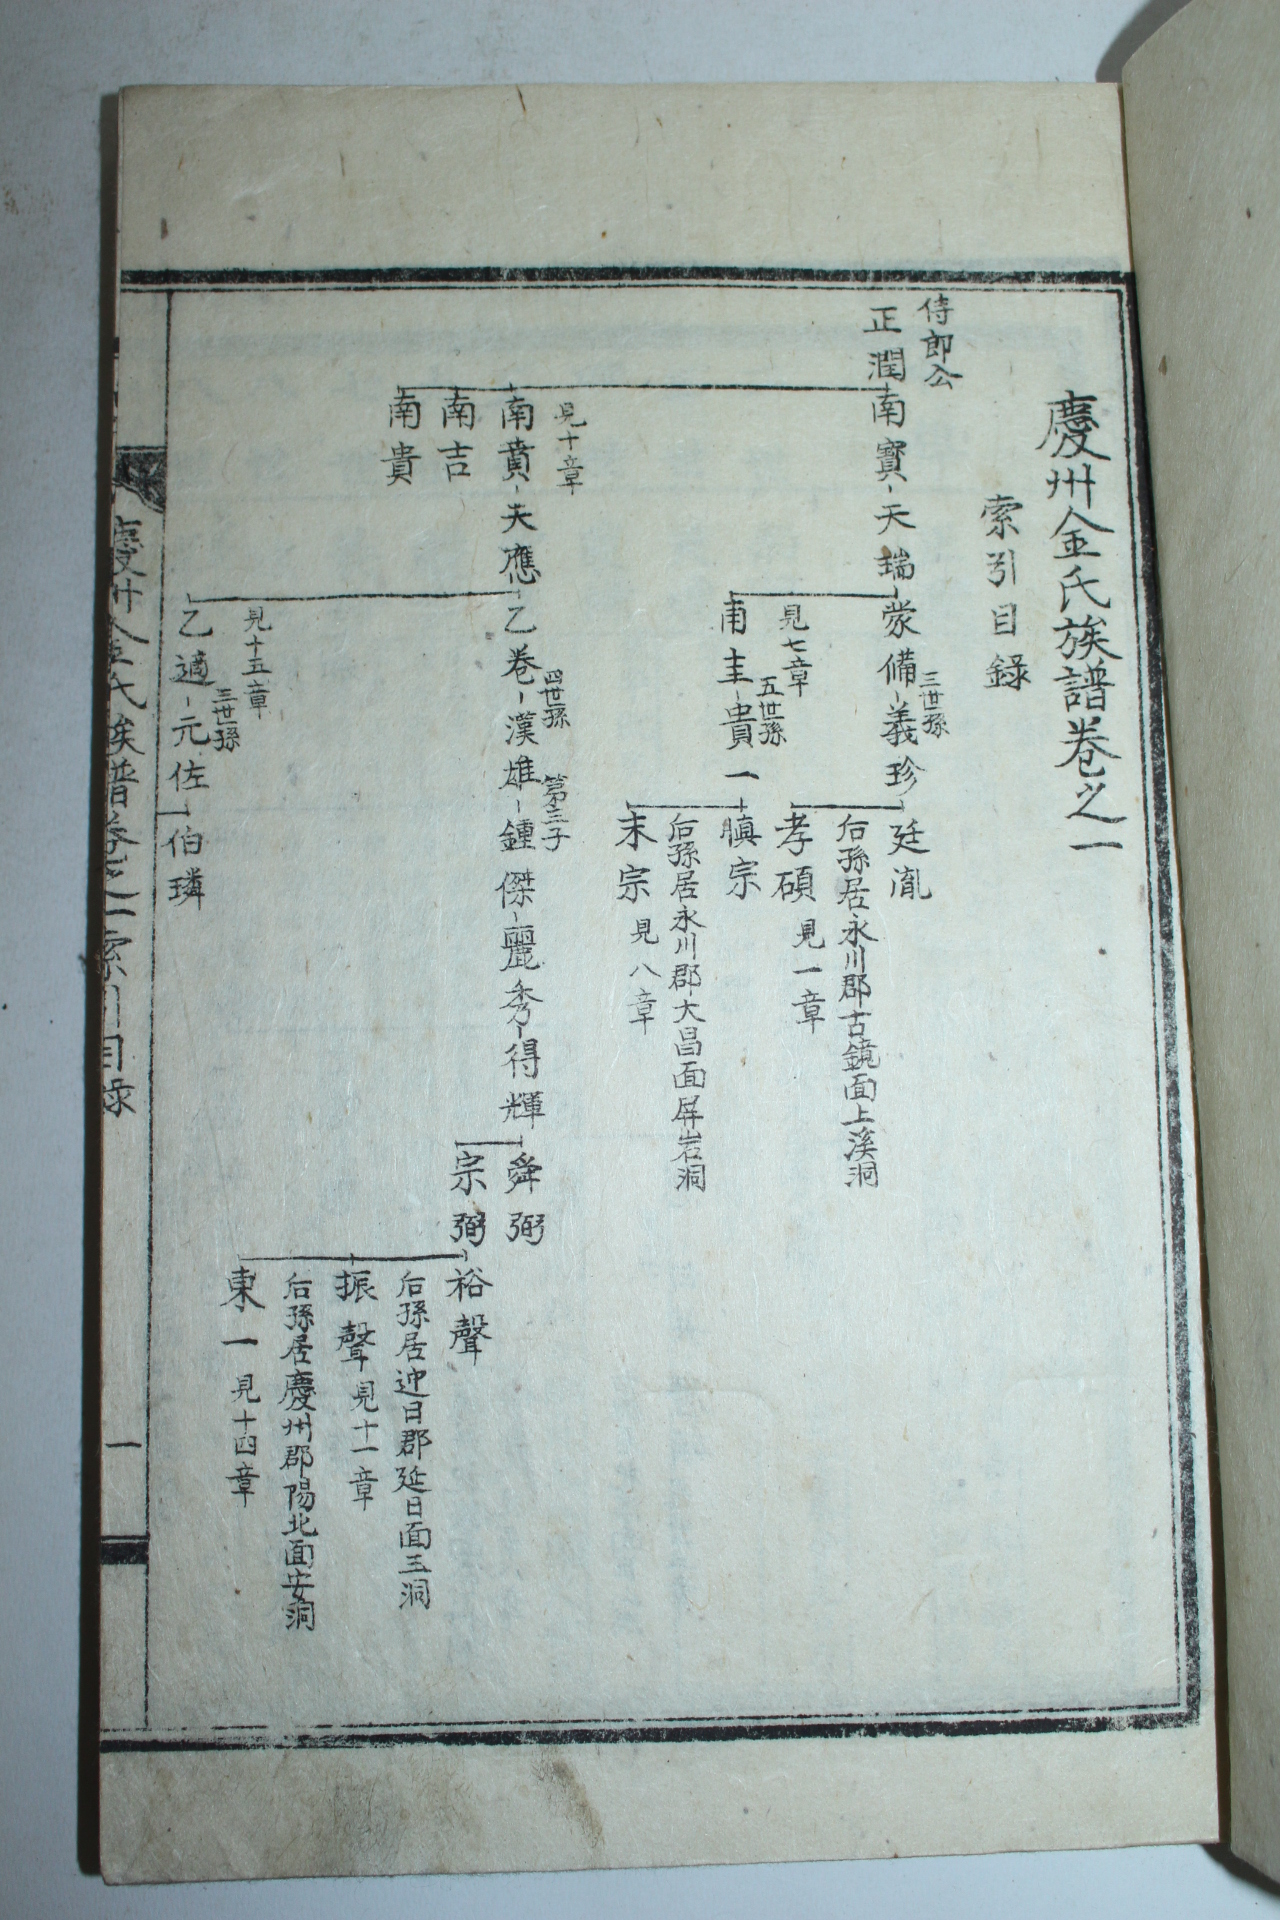 慶州金氏族譜卷之一
索引目錄
侍郎公
正潤
南寶-天瑞
蒙備-義珍
三世孫
廷胤
后孫居永川郡古鏡面上溪洞
孝碩 見一章
見七章
南圭-貴一
五世孫
順宗
后孫居永川郡大昌面屛岩洞
末宗 見八章
見十章
南賁-天應
乙卷-漢雄-鍾傑-麗秀-得輝
四世孫
第三子
舜弼
宗弼
裕聲
后孫居迎日郡延日面玉洞
振聲 見十一章
后孫居慶州郡陽北面安洞
東一 見十四章
南吉
南貴
見十五章
乙適-元佐
三世孫
伯璘
慶州金氏族譜卷之一 索引目錄
一